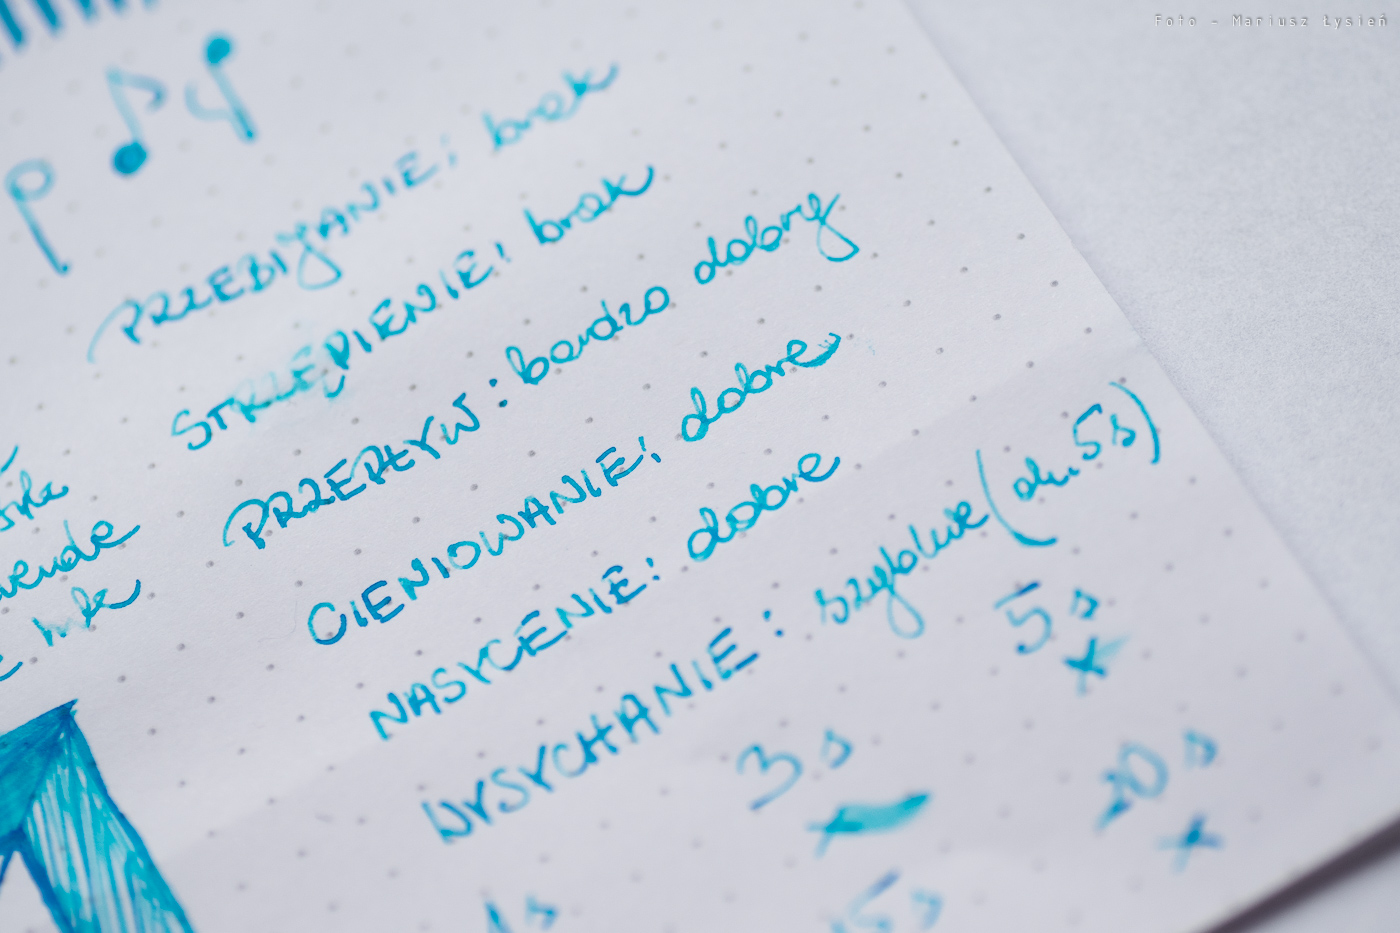 Foto - Mariusz Łysień
PRZEBIJANIE: brak
STRZĘPIENIE: brak
PRZEPŁYW: bardzo dobry
CIENIOWANIE: dobre
NASYCENIE: dobre
WYSYCHANIE: szybkie (ok. 5s)
5s
3s
10s
1s
15s